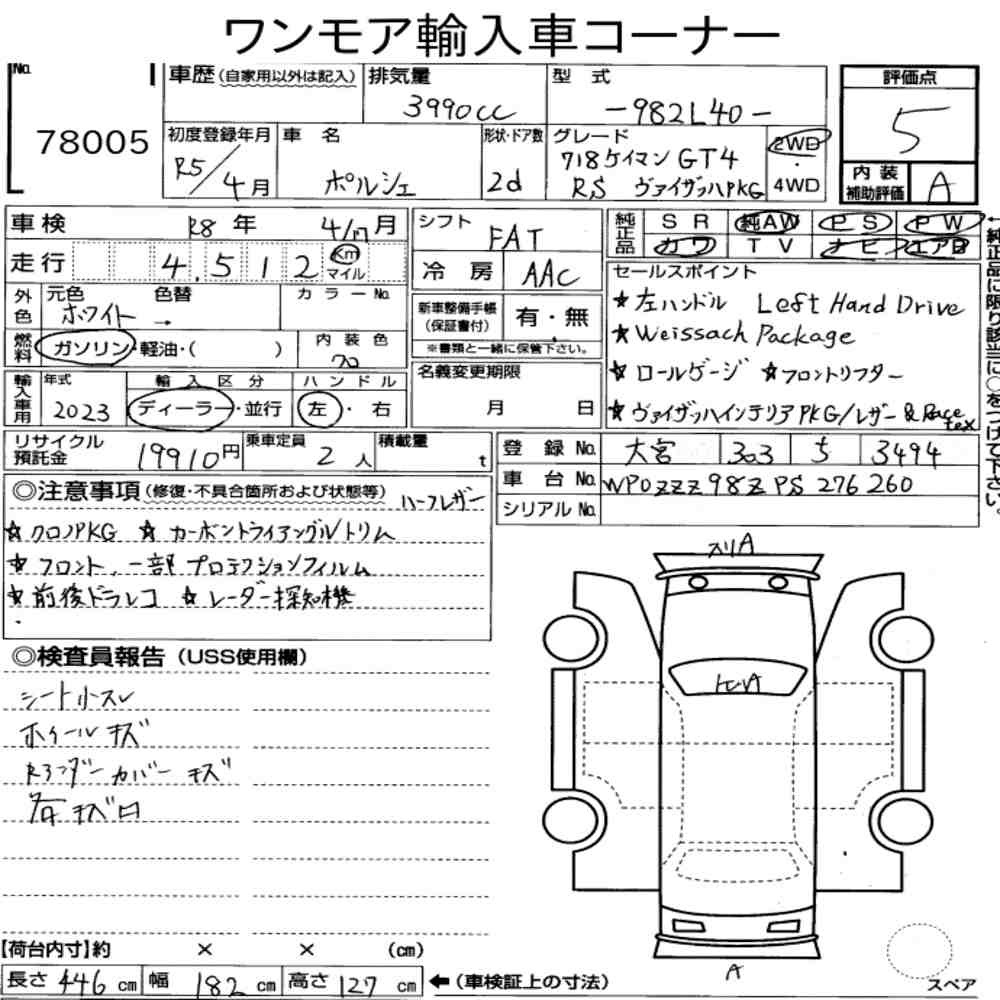 ワンモア輸入車コーナー
No. 78005
車歴(自家用以外は記入) 排気量 3990cc 型式 -982L40-
評価点 5
初度登録年月 R5/4月 車名 ポルシェ 形状・ドア数 2d グレード 718ケイマン GT4 RS ヴァイザッハPKG 2WD・4WD
内装補助評価 A
車検 R8年 4/ 月 シフト FAT
純正品 SR 純AW PS PW
カワ TV ナビ エアB
←純正品に限り該当に○をつけて下さい。
走行 4,512 Km マイル 冷房 AAC
外色 元色 ホワイト 色替 → カラーNo.
新車整備手帳(保証書付) 有・無
※書類と一緒に保管下さい。
燃料 ガソリン・軽油・( ) 内装色
名義変更期限 月 日
輸入車用 年式 2023 輸入区分 ディーラー・並行 ハンドル 左・右
セールスポイント
★左ハンドル Left Hand Drive
★Weissach Package
★ロールゲージ ★フロントリフター
★ヴァイザッハインテリアPKG/レザー & Race tex
リサイクル預託金 19910円 乗車定員 2人 積載量 t
登録No. 大宮 303 ち 3494
車台No. WP0ZZZ98ZPS276260
シリアルNo.
◎注意事項(修復・不具合箇所および状態等) ハーフレザー
★クロノPKG ★カーボントライアングルトリム
★フロント、一部プロテクションフィルム
★前後ドラレコ ★レーダー探知機
◎検査員報告(USS使用欄)
シート小スレ
ホイールキズ
Rアンダーカバーキズ
各キズ凹
A
A
A
【荷台内寸】約 × × (cm)
長さ 446 cm 幅 182 cm 高さ 127 cm ←(車検証上の寸法)
スペア